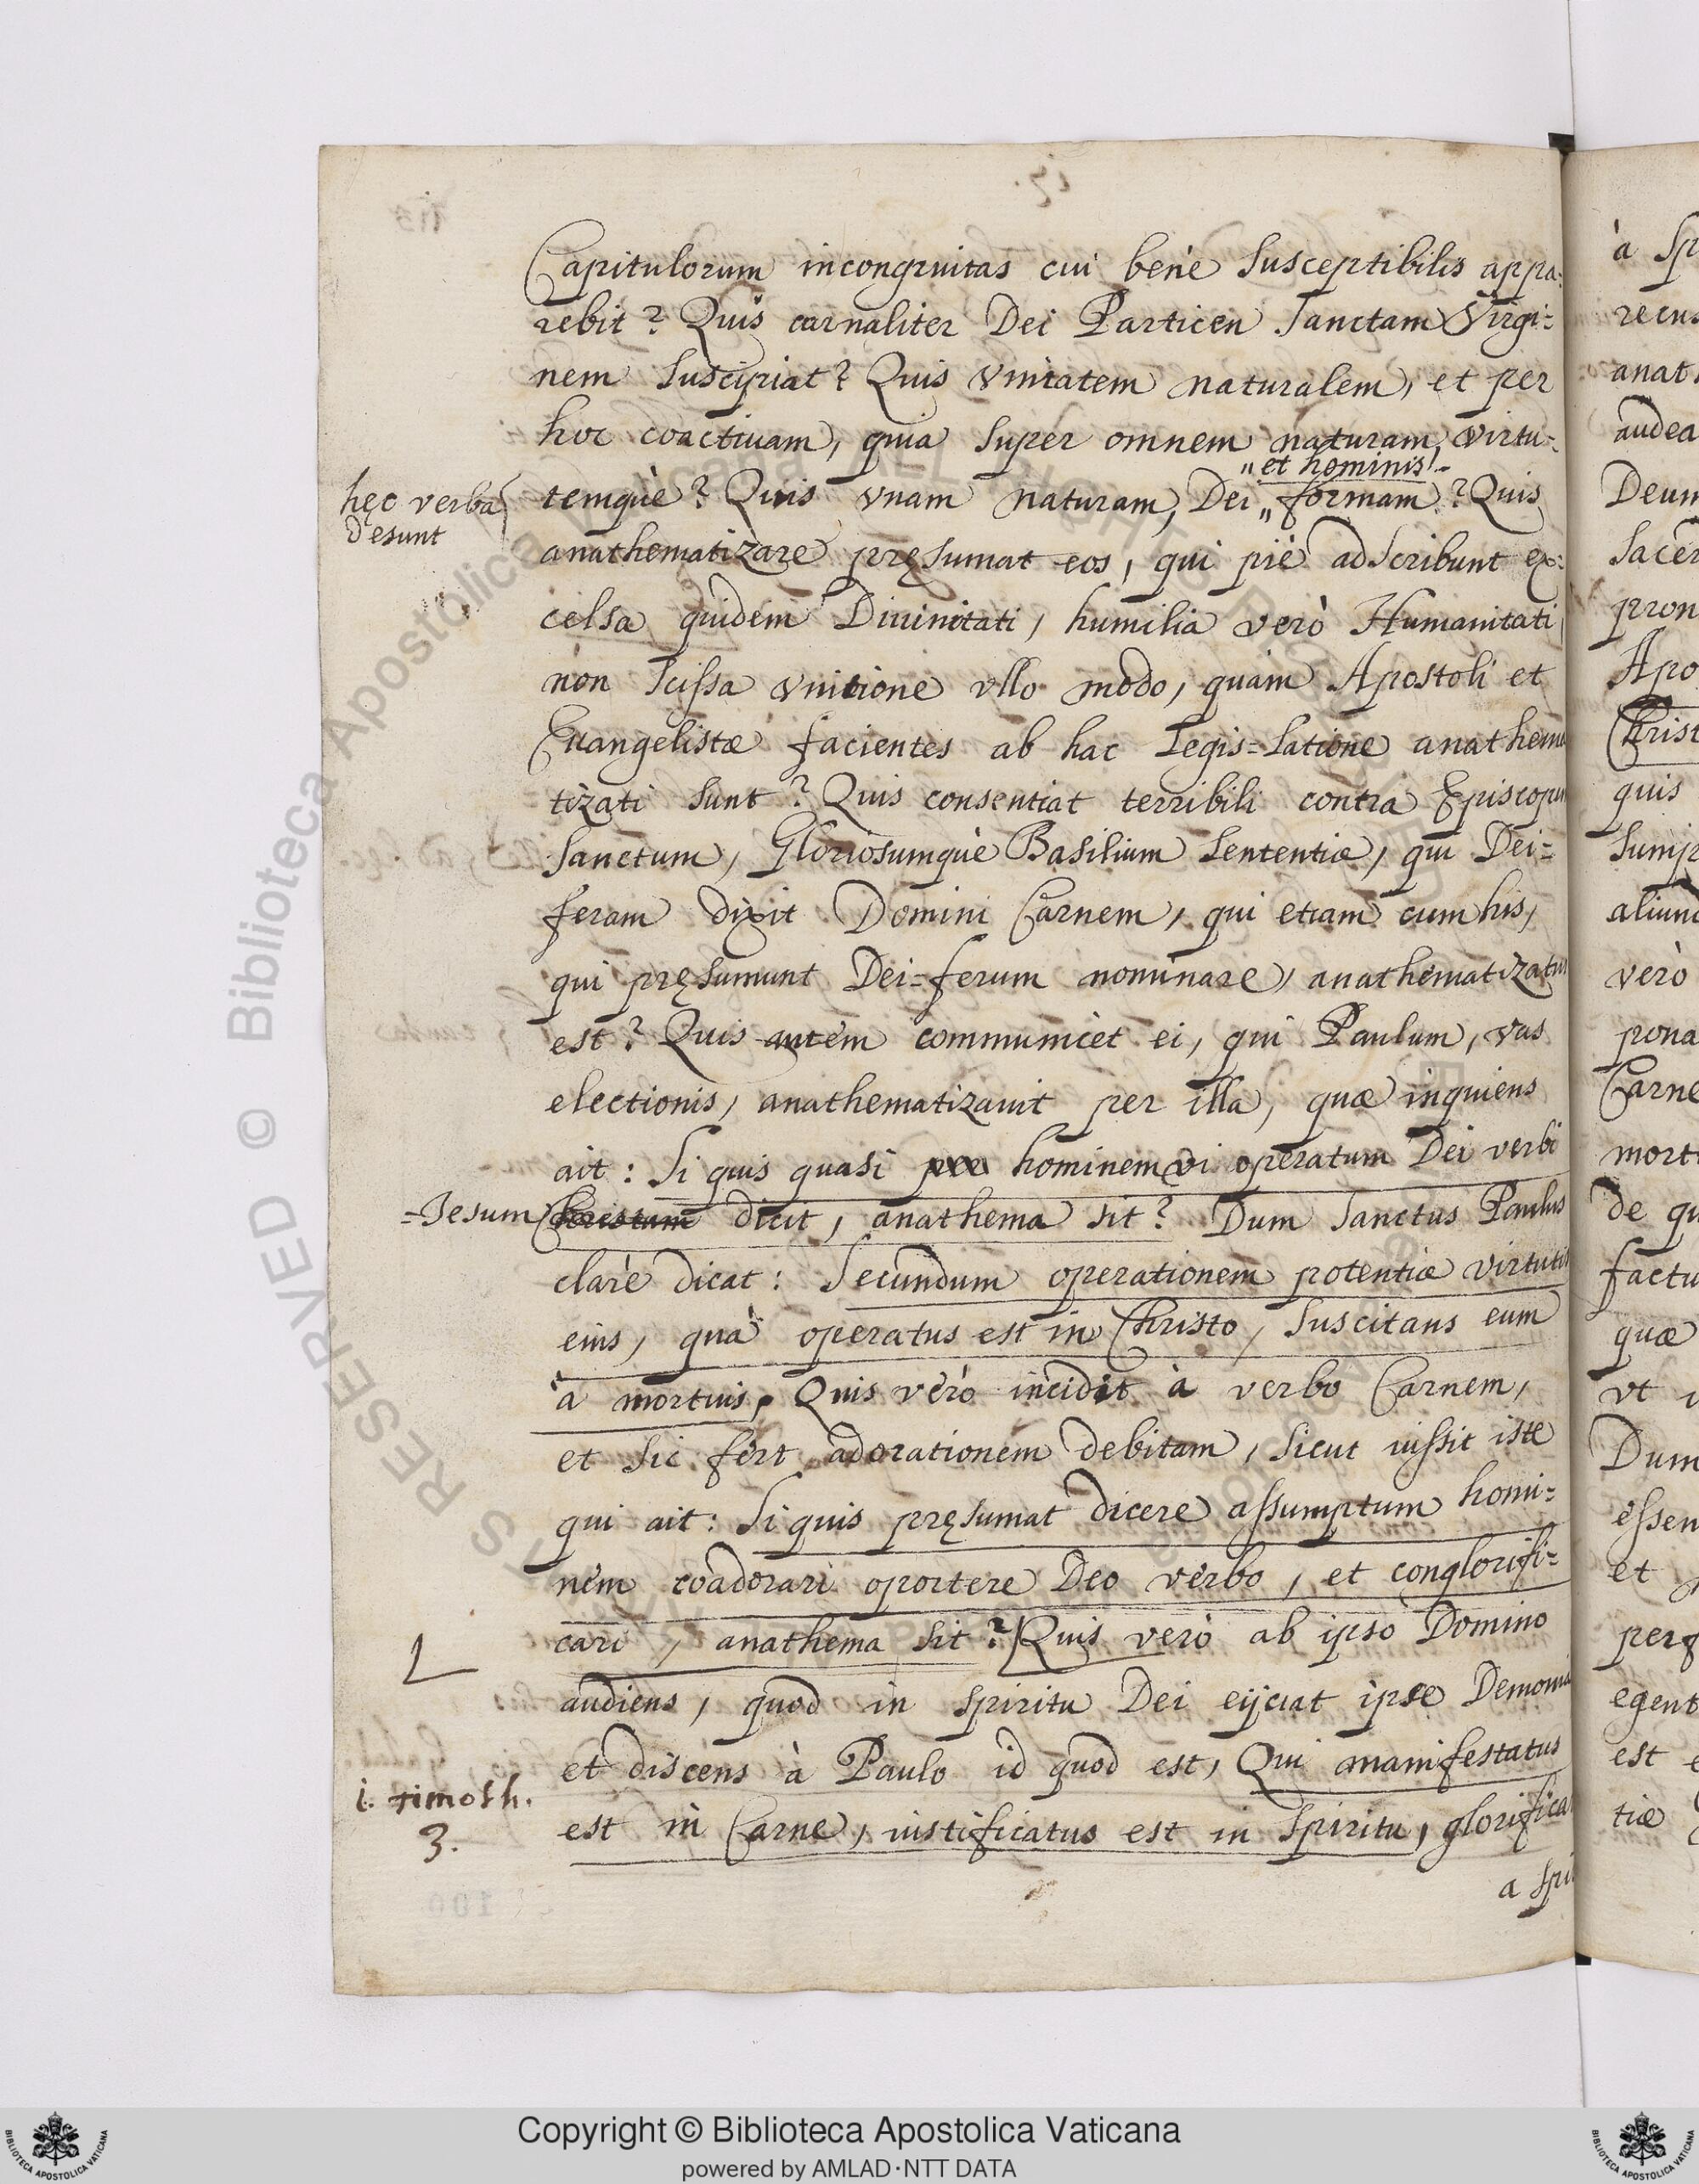 Capitulorum incongruitas cui benè susceptibilis appa=
rebit? Quis carnaliter Dei Particen Sanctam Virgi=
nem suscipiat? Quis vnitatem naturalem, et per
hoc coactiuam, quia super omnem naturam, virtu=
„et hominis
hęc verba
desunt
temquè? Quis vnam naturam, Dei „ formam? Quis
anathematizare pręsumat eos, qui piè adscribunt ex=
celsa quidem Diuinitati, humilia verò Humanitati
non scissa vnitione vllo modo, quam Apostoli et
Euangelistæ facientes ab hac Legis=latione anathema
tizati sunt? Quis consentiat terribili contra Episcopum
sanctum, Gloriosumquè Basilium sententiæ, qui Dei=
feram dixit Domini Carnem, qui etiam cum his,
qui pręsumunt Dei=ferum nominare, anathematizatus
est? Quis autem communicet ei, qui Paulum, vas
electionis, anathematizauit per illa, quæ inquiens
ait: Si quis quasi hominem vi operatum Dei verbi
=Jesum Christum dicit, anathema sit? Dum Sanctus Paulus
clarè dicat: Secundum operationem potentiæ virtutis
eius, quà operatus est in Christo, suscitans eum
à mortuis, Quis verò incidit à verbo Carnem,
et sic fert adorationem debitam, sicut iussit iste
qui ait: Si quis pręsumat dicere assumptum homi=
nem coadorari oportere Deo verbo, et conglorifi=
cari, anathema sit? Quis verò ab ipso Domino
audiens, quod in spiritu Dei eijciat ipse Demonia
et discens à Paulo id quod est, Qui manifestatus
i. timoth.
3.
est in Carne, iustificatus est in spiritu, glorifica
a spi
à Sp
recus
anat
audea
Deum
Sacer
pron
Apo
Christ
quis
sump
aliund
verò
pona
Carne
morte
de qu
factu
quæ
vt i
Dum
essen
et
perf
egent
est e
tiæ
© Biblioteca Apostolica Vaticana
Copyright © Biblioteca Apostolica Vaticana
powered by AMLAD·NTT DATA
BIBLIOTECA APOSTOLICA VATICANA
BIBLIOTECA APOSTOLICA VATICANA